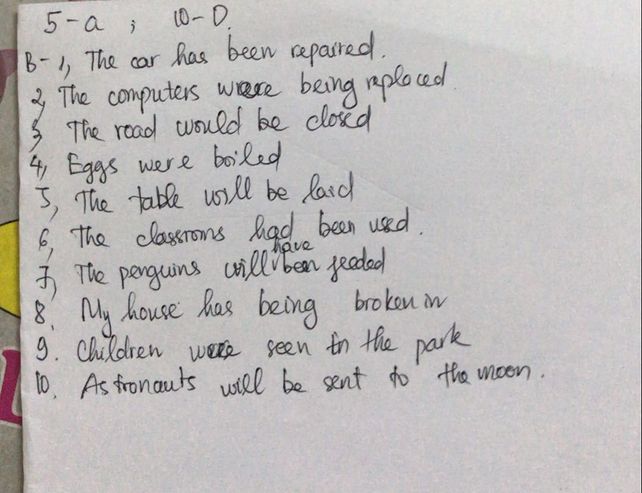 5-a ; 10-D.
B-1, The car has been repaired.
2, The computers were being replaced.
3, The road would be closed
4, Eggs were boiled
5, The table will be laid
6, The classroms had been used.
7, The penguins will have been feeded
8. My house has being broken in
9. Children were seen in the park
10. Astronauts will be sent to the moon.